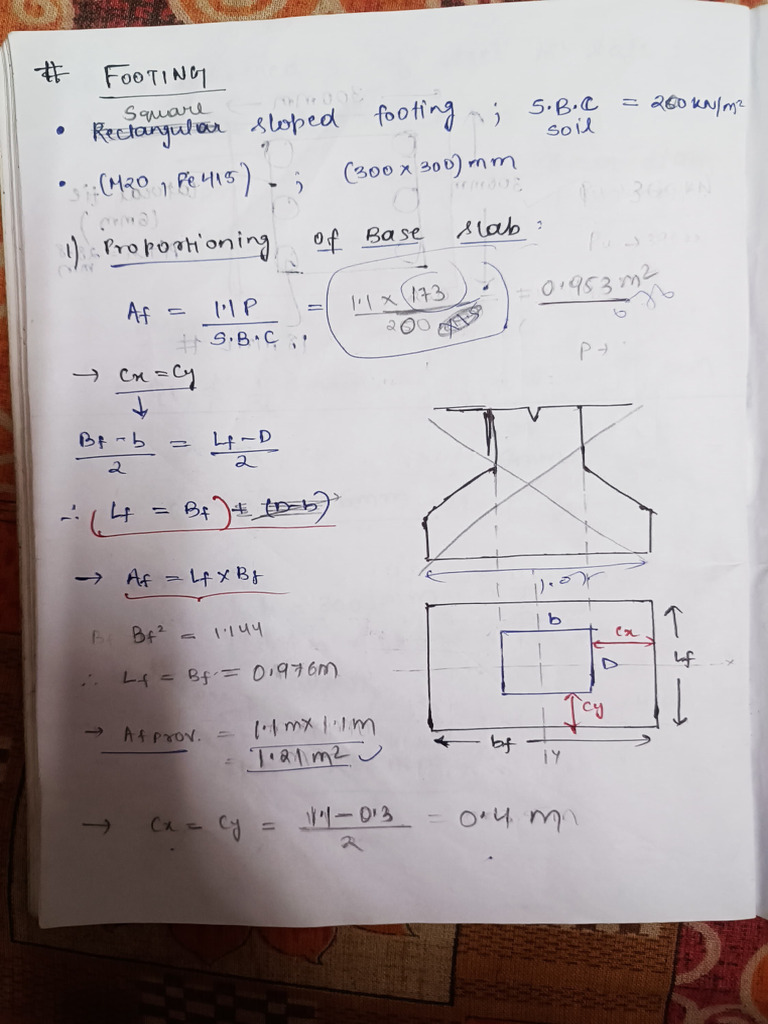 # FOOTING
Square
• Rectangular sloped footing ; S.B.C = 200 kN/m²
soil
• (M20, Fe415) ; (300 x 300) mm
1) Proportioning of Base slab :
Af = 1.1 P / S.B.C = 1.1 x 173 / 200 = 0.953 m²
P →
→ Cx = Cy
↓
Bf - b / 2 = Lf - D / 2
∴ (Lf = Bf) + (D-b)
→ Af = Lf x Bf
Bf² = 1.144
∴ Lf = Bf = 0.976m
→ Af prov. = 1.1m x 1.1m
= 1.21 m² ✓
→ Cx = Cy = 1.1 - 0.3 / 2 = 0.4 m
b
Cx
D
Lf
Cy
bf